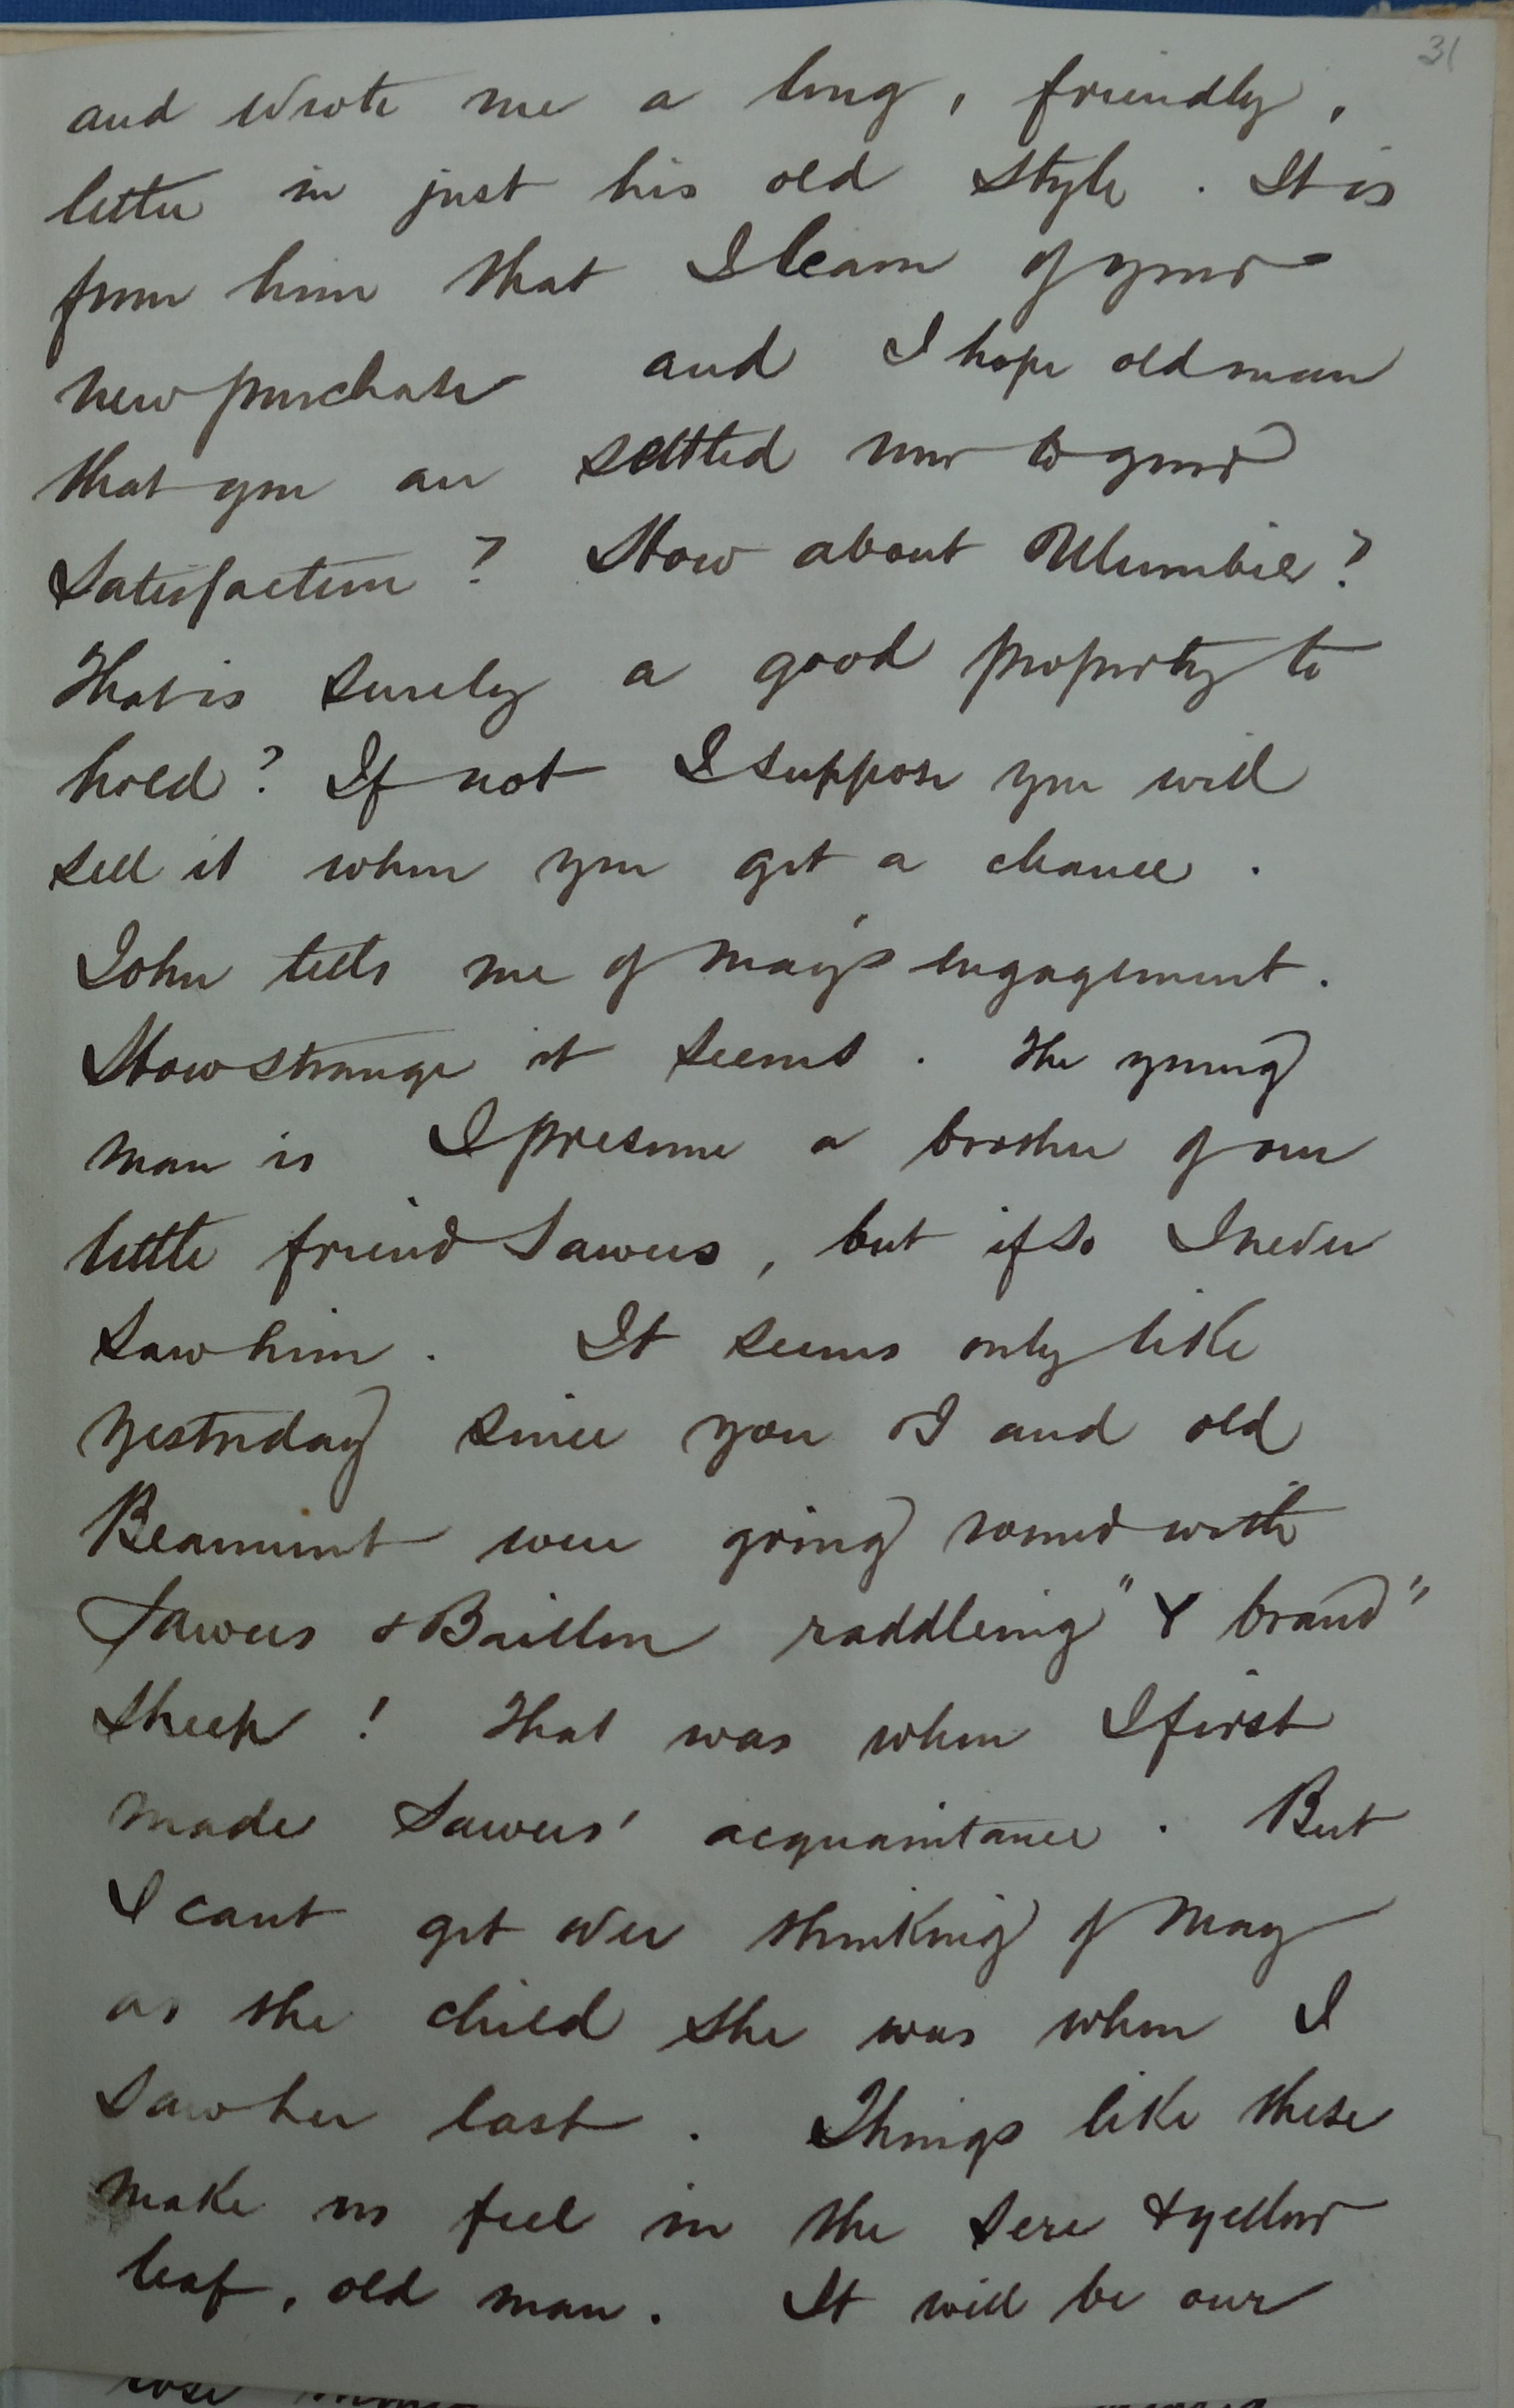 31
and wrote me a long, friendly,
letter in just his old style. It is
from him that I learn of your
new purchase and I hope old man
that you are settled now to your
satisfaction? How about Mumbie?
That is surely a good property to
hold? If not I suppose you will
sell it when you get a chance.
John tells me of May's engagement.
How strange it seems. The young
man is I presume a brother of our
little friend Sawers, but if so I never
saw him. It seems only like
yesterday since you I and old
Beaumont were going round with
Sawers & Baillon raddleing "Y brand"
sheep! That was when I first
made Sawers' acquaintance. But
I cant get over thinking of May
as the child she was when I
saw her last. Things like these
make us feel in the sere & yellow
leaf, old man. It will be our